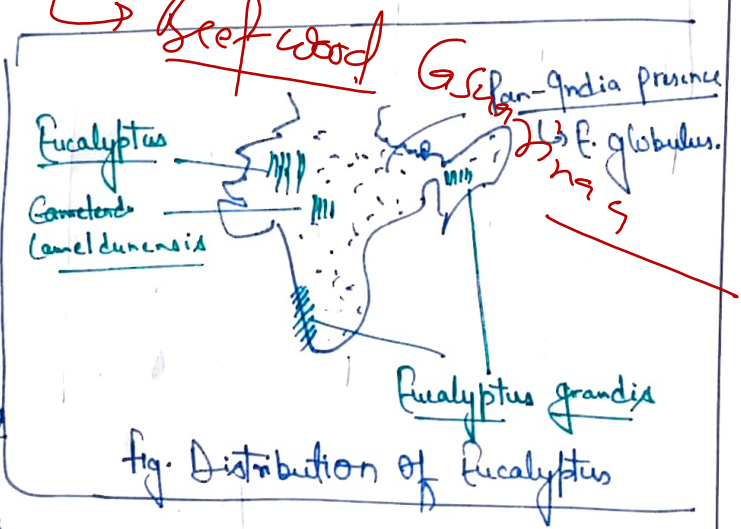 Beef wood
Pan-India presence
↳ E. globulus.
Eucalyptus
Cameldunensis
Eucalyptus grandis
fig. Distribution of Eucalyptus